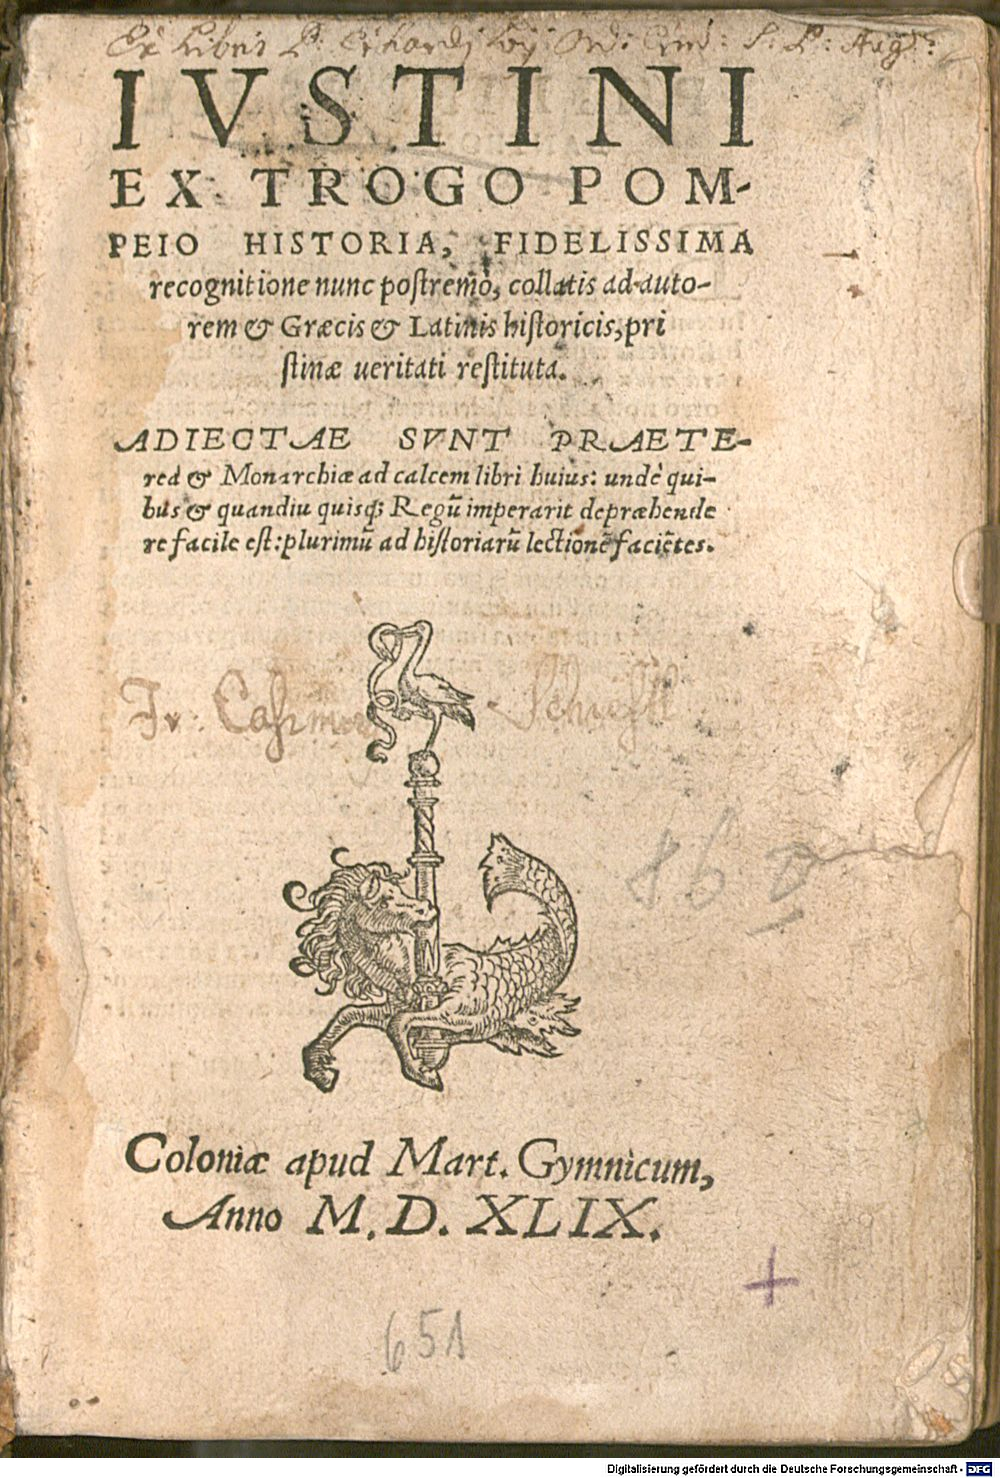 Ex Libris P. Erhardi
IVSTINI
EX TROGO POM-
PEIO HISTORIA, FIDELISSIMA
recognitione nunc postremò, collatis ad auto-
rem & Græcis & Latinis historicis, pri
stinæ veritati restituta.
ADIECTAE SVNT PRAETE-
rea & Monarchiæ ad calcem libri huius: unde qui-
bus & quandiu quisq; Regũ imperarit depræhende
re facile est: plurimũ ad historiarũ lectionẽ faciẽtes.
Casimir
Coloniæ apud Mart. Gymnicum,
Anno M. D. XLIX.
651
Digitalisierung gefördert durch die Deutsche Forschungsgemeinschaft - DFG